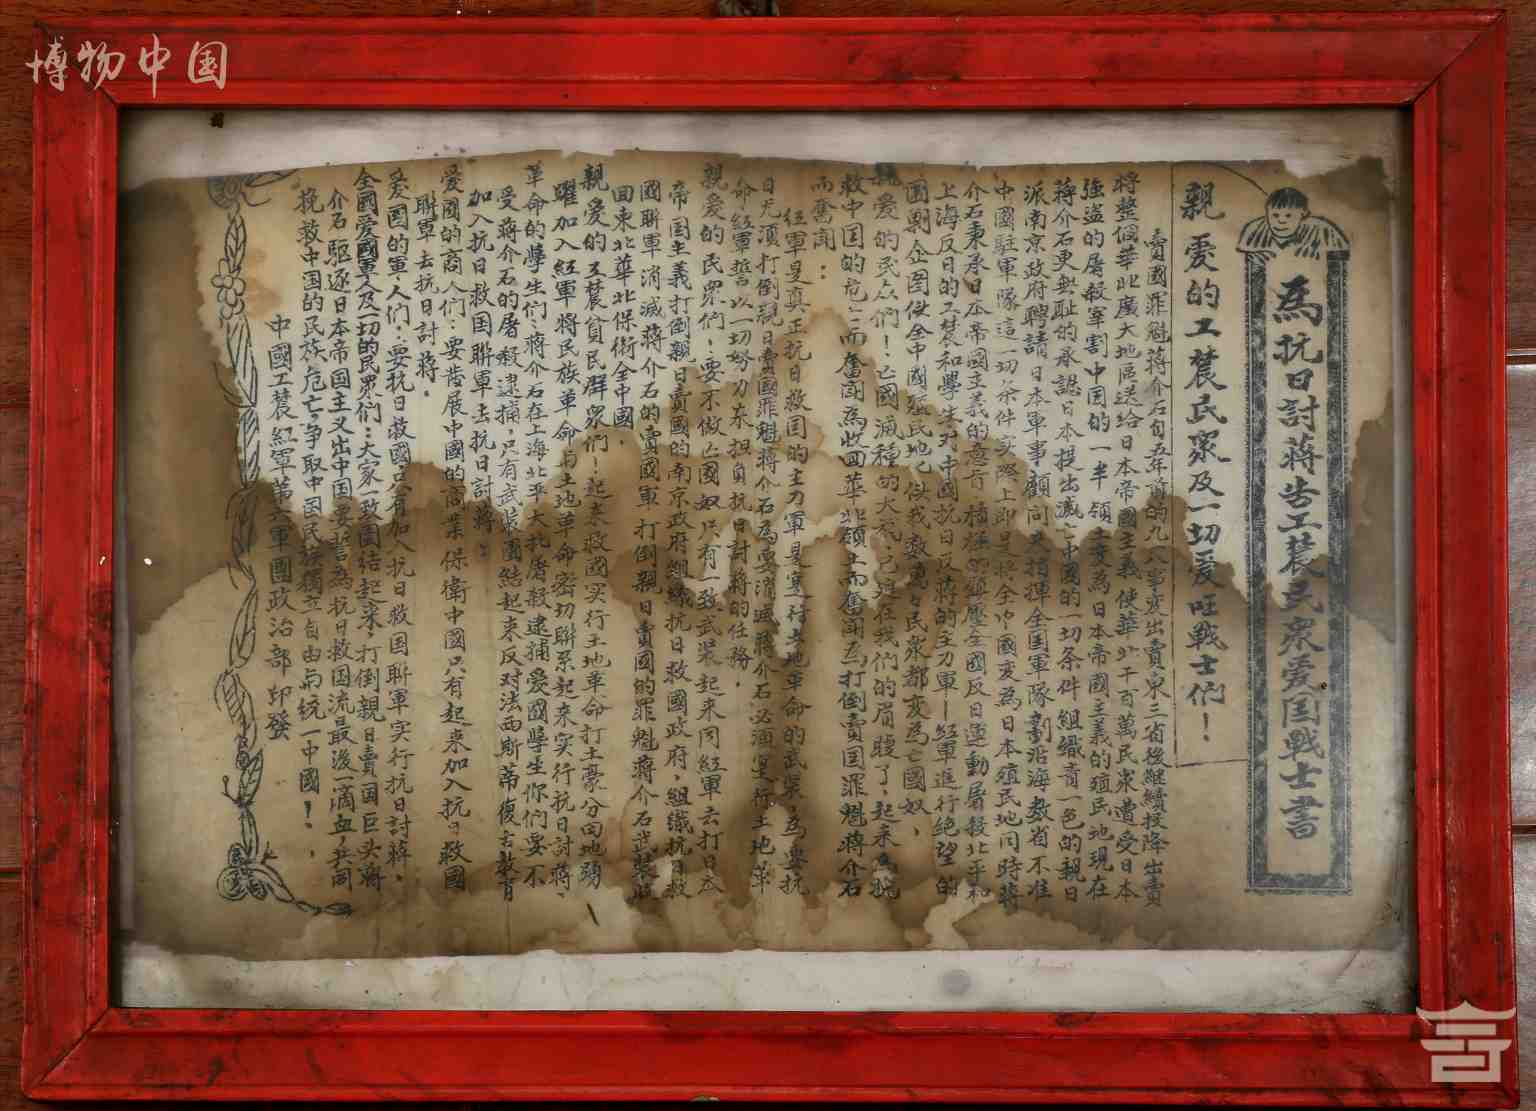 博物中国
為抗日討蔣告工農民衆爱国戰士書
親爱的工農民衆及一切爱国战士們！
賣國罪魁蔣介石自五年前的九一八事变出賣東三省後継續投降出賣
將整個華北廣大地區送給日本帝國主義使華北千百萬民衆遭受日本
強盗的屠殺宰割中国的一半領土变為日本帝國主義的殖民地現在
蔣介石更無恥的承認日本提出滅亡中國的一切条件組織青一色的親日
派南京政府聘請日本軍事顧問去指揮全国軍隊劃沿海数省不准
中國駐軍隊這一切条件实際上即是将全中國变為日本殖民地同時蔣
介石秉承日本帝國主義的意旨積極的鎮壓全國反日運動屠殺北平和
上海反日的工農和學生对中國抗日反蔣的主力軍—紅軍進行绝望的
圍剿企图使全中國殖民地化使我数萬万民衆都变為亡國奴，
親爱的民众們！亡國滅種的大禍已迫在我們的眉睫了，起來為抗
救中国的危亡而奮鬪為收囬華北領土而奮鬪為打倒賣国罪魁蔣介石
而奮鬪：
紅軍是真正抗日救国的主力軍是实行土地革命的武装為要抗
日尤須打倒親日賣國罪魁蔣介石為要消滅蔣介石必須实行土地革
命紅軍誓以一切努力來担負抗日討蔣的任務，
親爱的民眾們！要不做亡國奴只有一致武装起来同紅軍去打日本
帝国主義打倒親日賣國的南京政府組織抗日救國政府，組織抗日救
國聯軍消滅蔣介石的賣國軍打倒親日賣國的罪魁蔣介石武装收
囬東北華北保衛全中國
親爱的工農貧民群眾們！起来救國实行土地革命打土豪分田地踴
躍加入紅軍将民族革命与土地革命密切聯系起来实行抗日討蔣，
革命的學生們：蔣介石在上海北平大批屠殺逮捕爱國學生你們要不
受蔣介石的屠殺逮捕，只有武装團結起来反对法西斯蒂復古教育
加入抗日救国聯軍去抗日討蔣：
爱國的商人們：要發展中國的商業保衛中國只有起来加入抗日救國
聯軍去抗日討蔣，
爱国的軍人們：要抗日救國只有加入抗日救国聯軍实行抗日討蔣，
全國爱國軍人及一切的民眾們：大家一致團結起来，打倒親日賣国巨头蔣
介石驅逐日本帝国主义出中国要誓為抗日救国流最後一滴血，共同
挽救中国的民族危亡争取中国民族獨立自由与统一中國！
中國工農紅軍第六軍團政治部印發